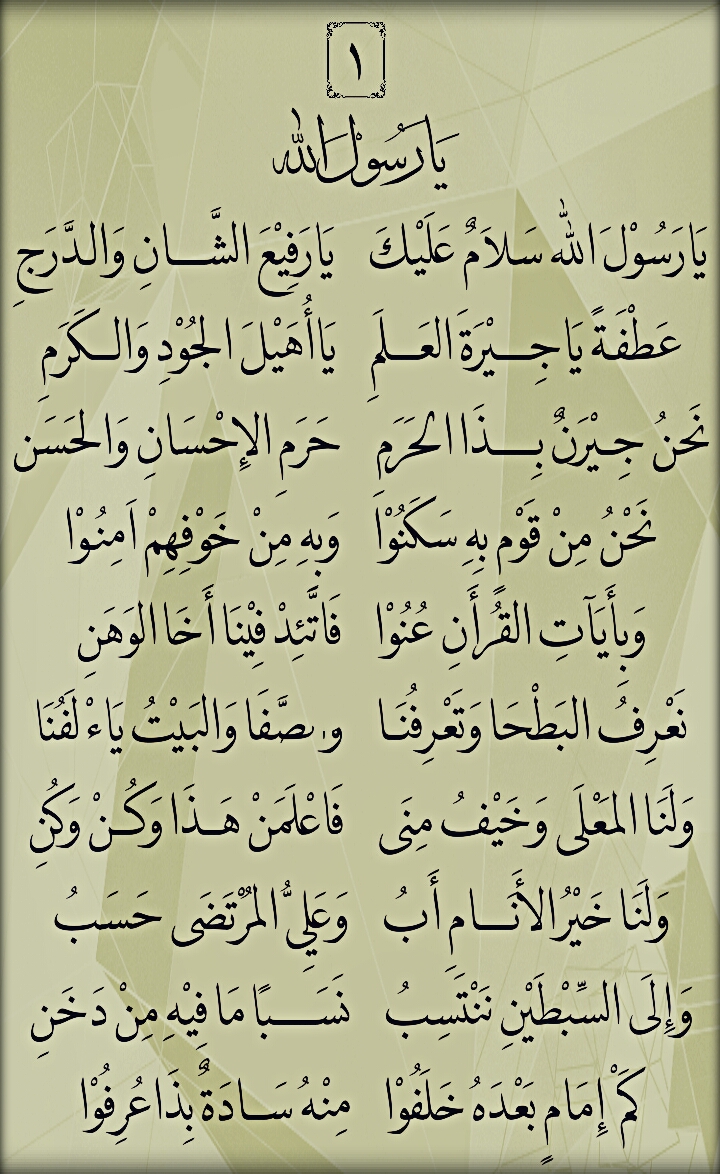 ١
يَارَسُوْلَ الله
يَارَسُوْلَ الله سَلاَمٌ عَلَيْكَ يَارَفِيْعَ الشَّـــانِ وَالدَّرَجِ
عَطْفَةً يَاجِـــيْرَةَ العَـــلَمِ يَاأُهَيْلَ الجُوْدِ وَالـــكَرَمِ
نَحنُ جِـيْرَنٌ بِـــذَا الحَرَمِ حَرَمِ الإِحْسَانِ وَالحَسَن
نَحْنُ مِنْ قَوْمٍ بِهِ سَكَنُوْا وَبِهِ مِنْ خَوْفِهِمْ اَمِنُـوْا
وَبِأَيَآتِ القُرْأَنِ عُنُوْا فَاتَّئِدْ فِيْنَا أَخَا الوَهَنِ
نَعْرِفُ البَطْحَا وَتَعْرِفُنَـا وَالصَّفَا وَالبَيْتُ يَاءْلَفُنَا
وَلَنَا المَعْلَى وَخَيْفُ مِنَى فَاعْلَمَنْ هَـذَا وَكُـنْ وَكُنِ
وَلَنَا خَيْرُ الأَنَـــامِ أَبُ وَعَلِيُّ المُرْتَضَى حَسَبُ
وَإِلَى السِّبْطَيْنِ نَنْتَسِبُ نَسَـــبًا مَا فِيْهِ مِنْ دَخَنِ
كَمْ إِمَامٍ بَعْدَهُ خَلَفُوْا مِنْهُ سَــادَةٌ بِذَا عُرِفُوْا